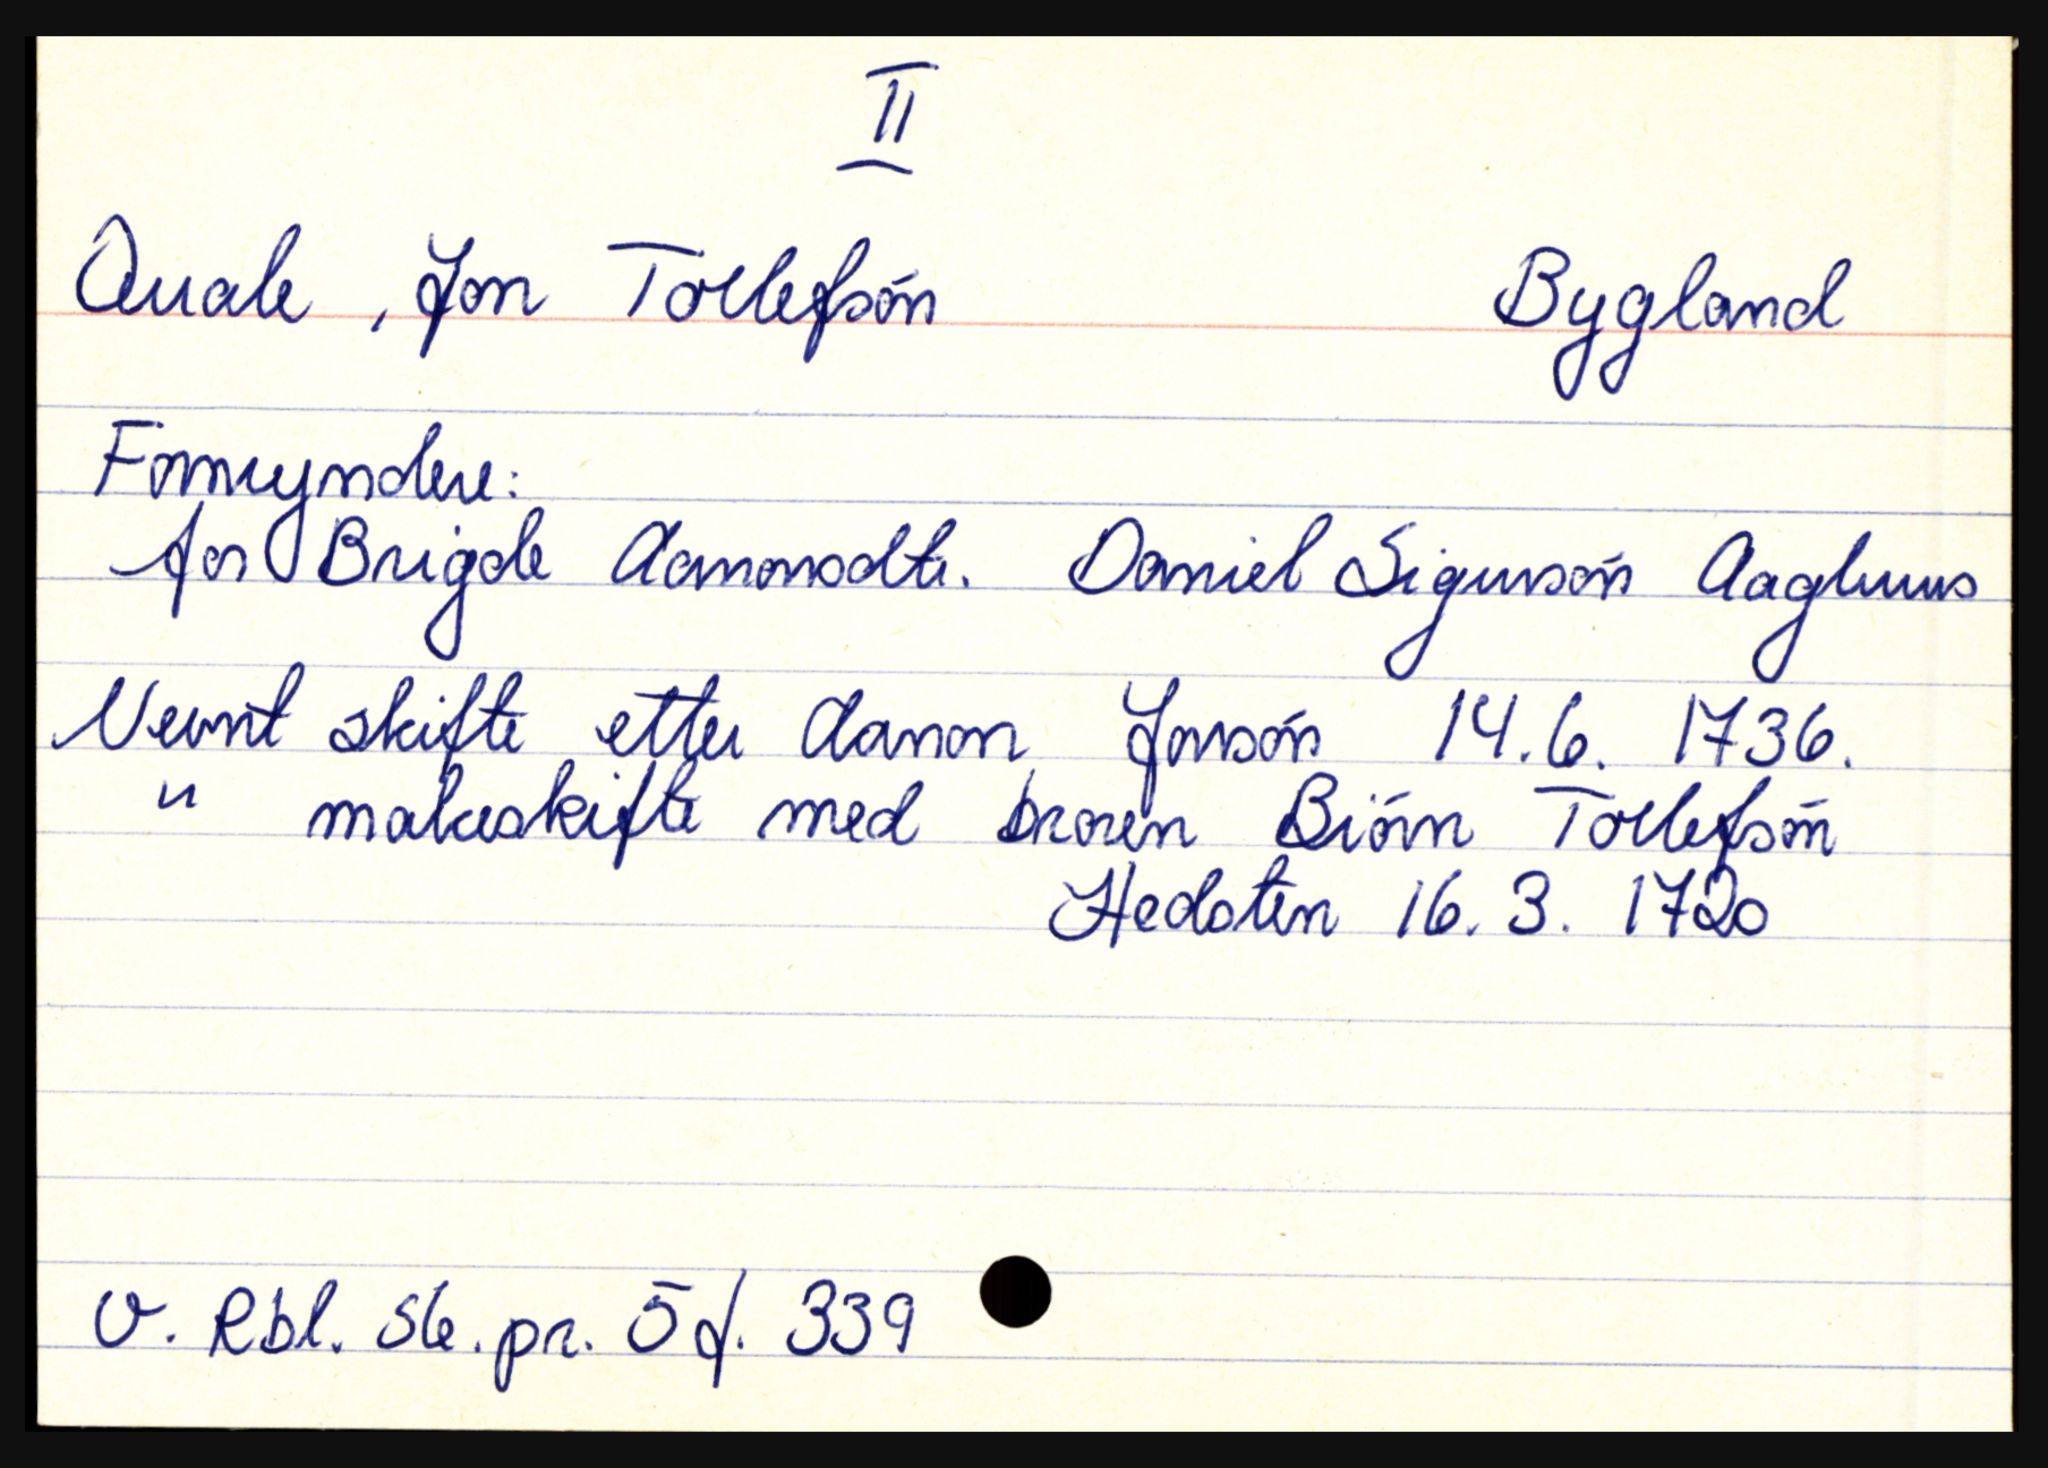 II
Quale, Jon Tollefsön Bygland
Formyndere:
for Brigde Aanonsdtr. Daniel Sigursön Aaghuus
Nevnt skifte etter Aanon Jonsön 14.6. 1736.
" makeskifte med broren Biörn Tollefsön
Hedsten 16. 3. 1720
V. Rbl. Sk. pr. 5 f. 339